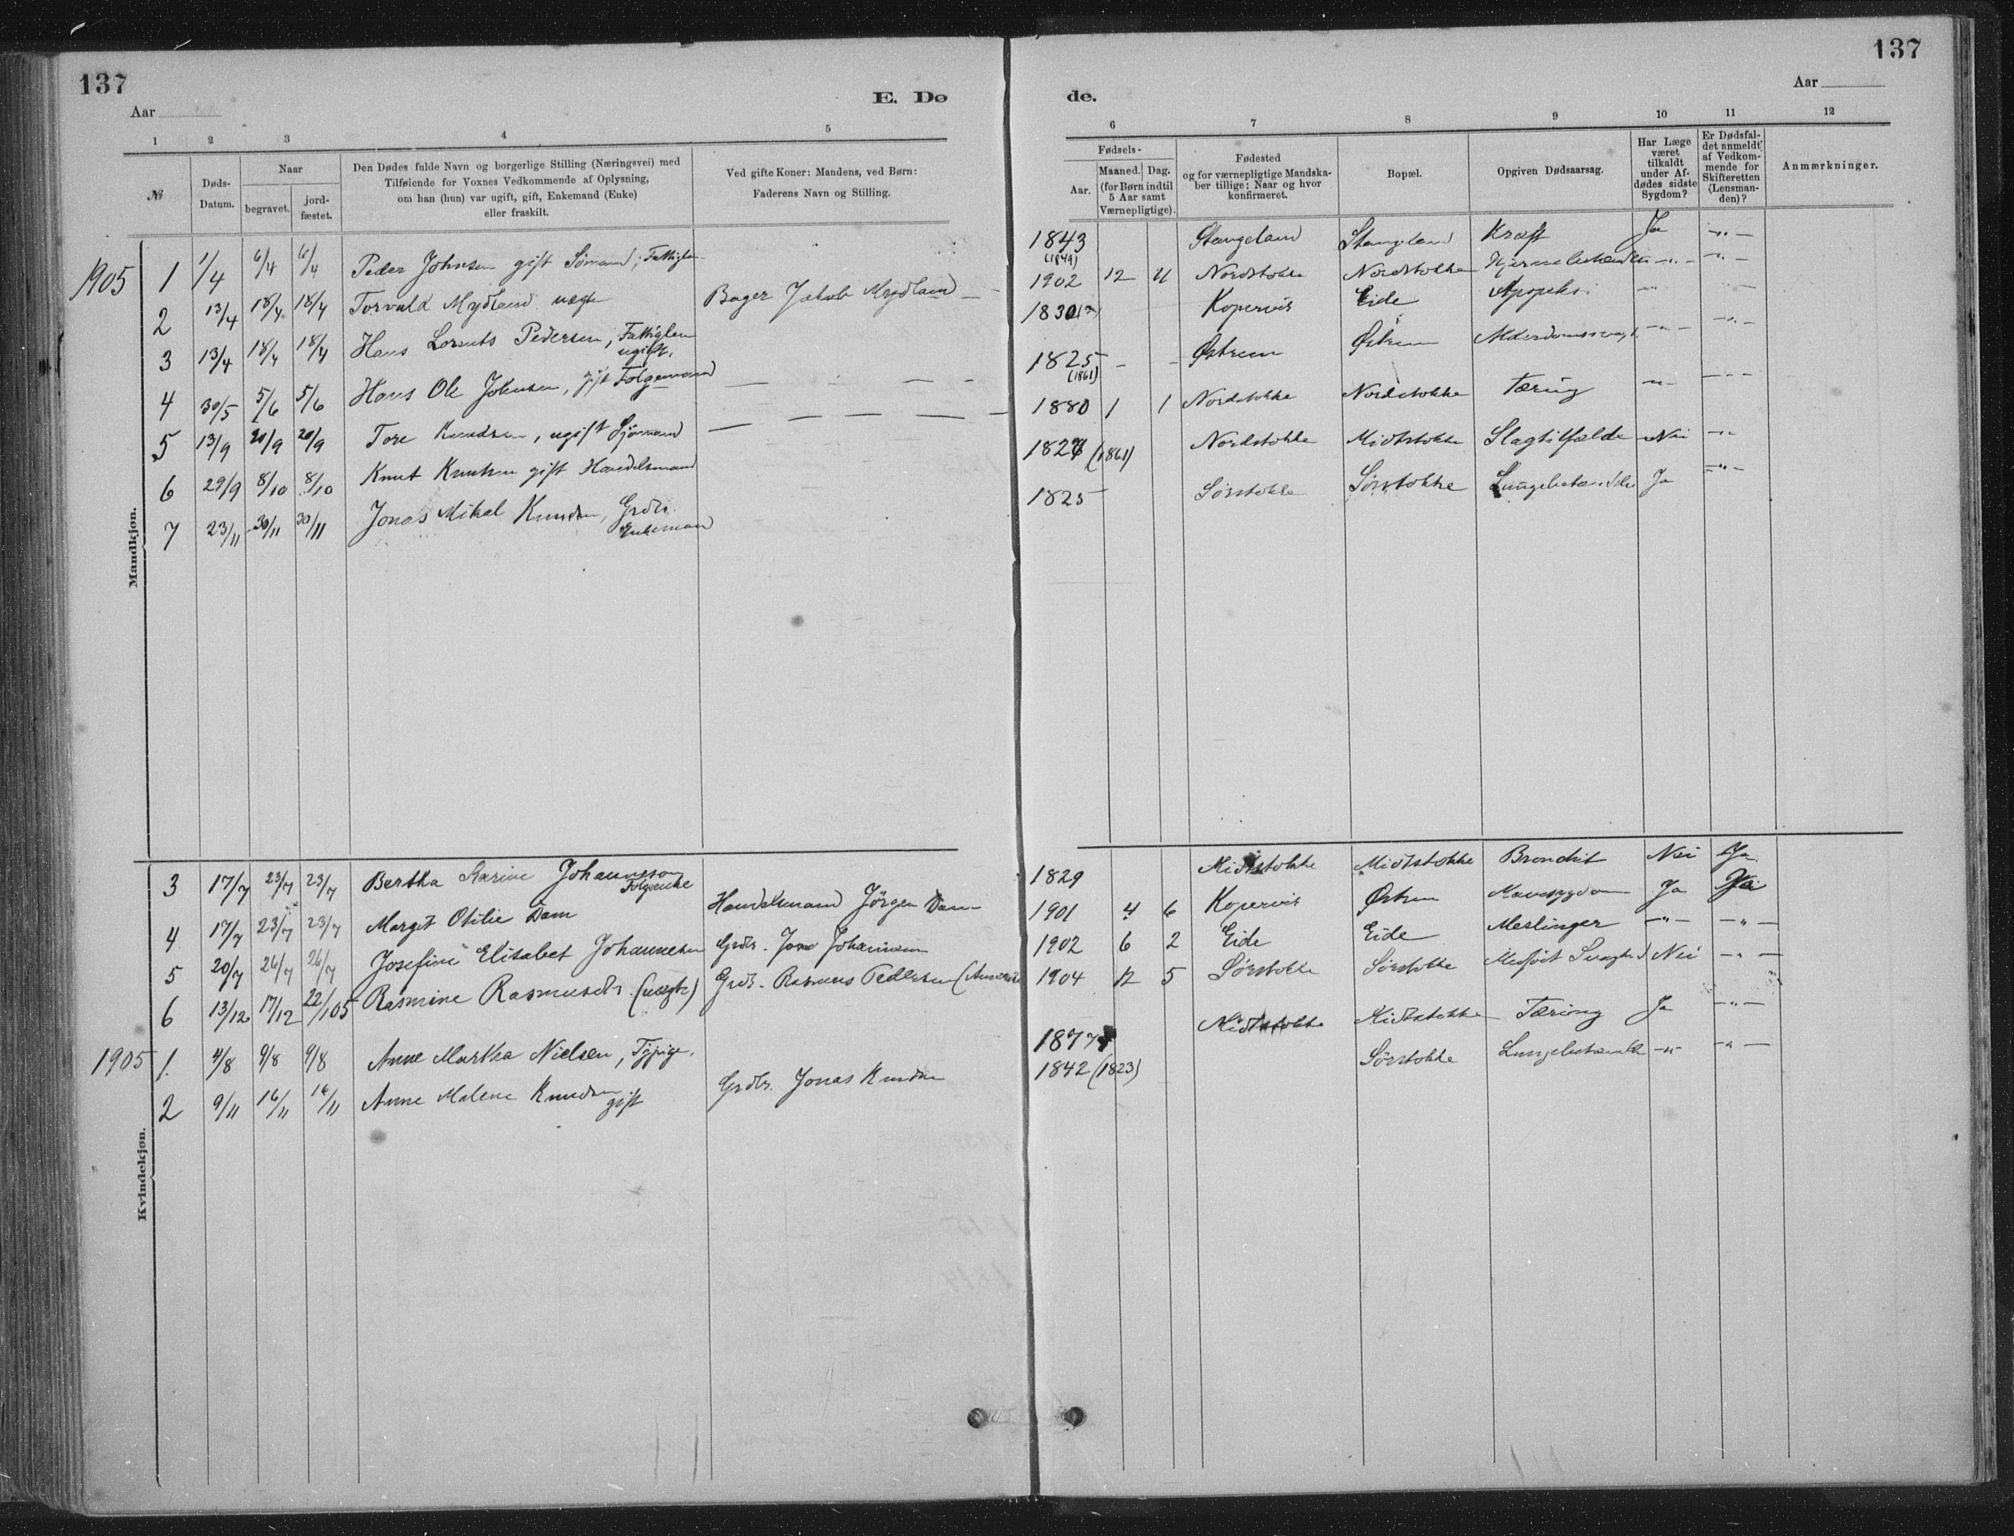 137
137
Aar
E. Dø
de.
Aar
1 2 3 4 5 6 7 8 9 10 11 12
№
Døds-Datum.
Naar
begravet.
jord-fæstet.
Den Dødes fulde Navn og borgerlige Stilling (Næringsvei) med
Tilføiende for Voxnes Vedkommende af Oplysning,
om han (hun) var ugift, gift, Enkemand (Enke)
eller fraskilt.
Ved gifte Koner: Mandens, ved Børn:
Faderens Navn og Stilling.
Fødsels-
Aar.
Maaned. Dag.
(for Børn indtil
5 Aar samt
Værnepligtige).
Fødested
og for værnepligtige Mandska-
ber tillige: Naar og hvor
konfirmeret.
Bopæl.
Opgiven Dødsaarsag.
Har Læge
været
tilkaldt
under Af-
dødes sidste
Sygdom?
Er Dødsfal-
det anmeldt
af Vedkom-
mende for
Skifteretten
(Lensman-
den)?
Anmærkninger.
Mandkjøn.
1905 1 1/4 6/4 6/4 Peder Johnsen gift Sömand, Fattiglem 1843 (1849) Stangeland Stangeland Kræft Ja -"-
2 13/4 18/4 18/4 Torvald Mydland uægte Bager Jakob Mydland 1902 12 Nordstokke Nordstokke -"- -"-
3 13/4 18/4 18/4 Hans Pedersen, Fattiglem ugift. 1830 Kopervik Eide Apopleksi -"-
4 30/5 5/6 5/6 Hans Ole Johnsen, gift Folgemand 1825 (1861) - - Østrem Østrem -"- -"-
5 13/9 20/9 20/9 Tore Knudsen, ugift Sjömand 1880 1 1 Nordstokke Nordstokke Tæring -"- -"-
6 29/9 8/10 8/10 Knut Knutsen gift Handelsmand 1827 (1861) Nordstokke Midtstokke Slagtilfælde Nei -"-
7 23/11 30/11 30/11 Jonas Mikal Knudsen, Grdbr. Enkemand 1825 Sörstokke Sörstokke Lungebetændelse Ja -"-
Kvindekjøn.
3 17/7 23/7 23/7 Bertha Karine Johannesen Folgeenke 1829 Midtstokke Midtstokke Nei Ja
4 17/7 23/7 23/7 Margit Otilie Dam Handelsmand Jörgen Dam 1901 4 6 Kopervik Østrem Mavesygdom Ja Nei
5 20/7 26/7 26/7 Josefine Elisabet Johannesen Grdbr. Johannesen 1902 6 2 Eide Eide Meslinger -"- -"-
6 13/12 17/12 22/1 05 Rasmine Rasmusdtr. (uægte) Grdbr. Rasmus Pedersen (Amerika 1904 12 5 Sörstokke Sörstokke Medfödt Svaghed Nei -"-
1905 1. 4/8 9/8 9/8 Anne Martha Nielsen, Tjpige. 1877 Midtstokke Midtstokke Tæring Ja -"-
2 9/11 16/11 16/11 Anne Malene Knudsen gift Grdbr. Jonas Knudsen 1842 (1823) Sörstokke Lungebetændelse -"- -"-